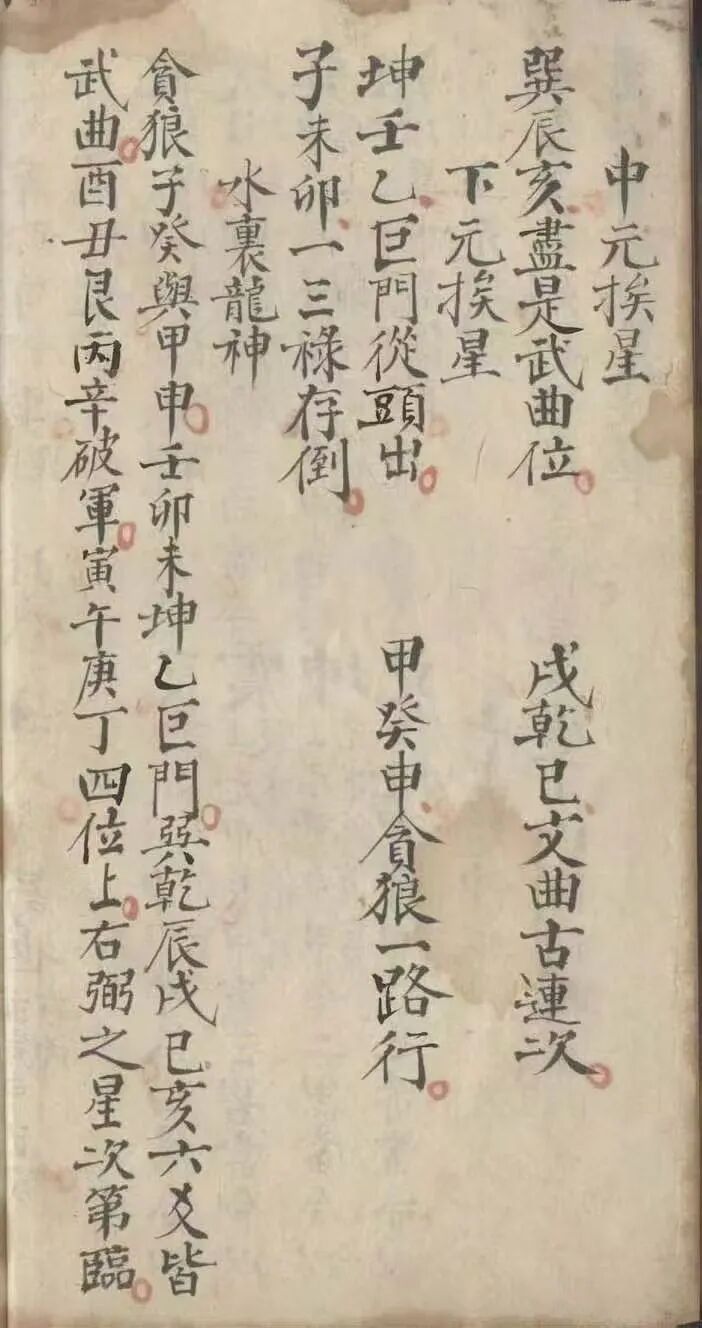 中元挨星
巽辰亥盡是武曲位。
戌乾巳文曲古連次。
下元挨星
坤壬乙巨門從頭出。
甲癸申貪狼一路行。
子未卯一三祿存倒。
水裏龍神
貪狼子癸與甲申。壬卯未坤乙巨門。巽乾辰戌巳亥六爻皆
武曲。酉丑艮丙辛破軍。寅午庚丁四位上。右弼之星次第臨。